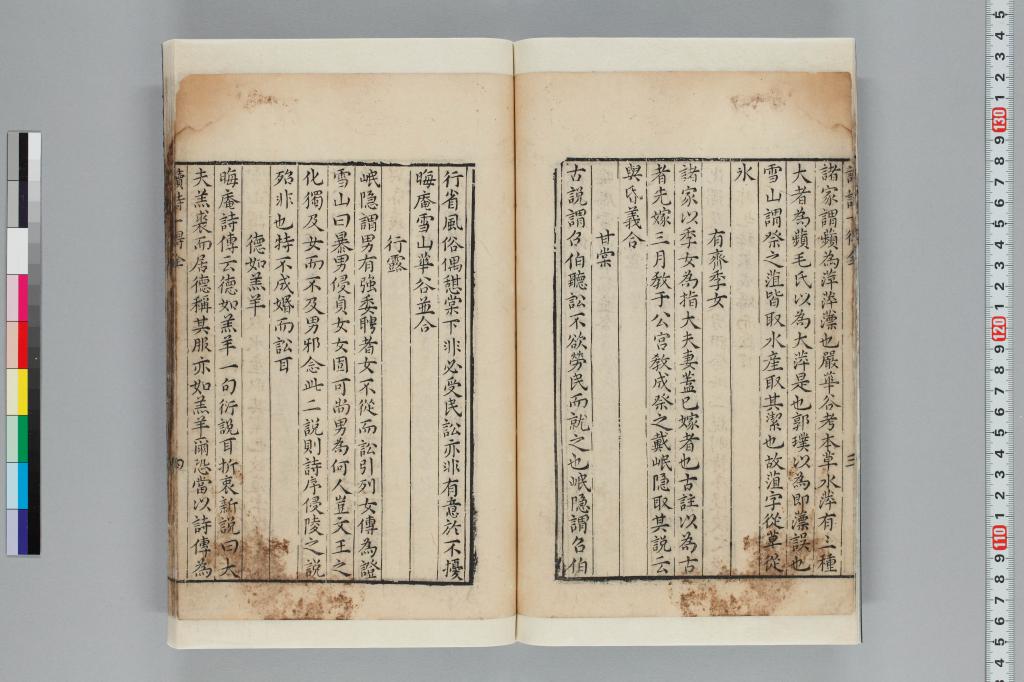 諸家謂蘋為萍萍藻也嚴華谷考本草水萍有三種
大者為蘋毛氏以為大萍是也郭璞以為即藻誤也
雪山謂祭之菹皆取水產取其潔也故菹字從草從
水
有齊季女
諸家以季女為指大夫妻蓋已嫁者也古註以為古
者先嫁三月教于公宮教成祭之戴岷隐取其說云
與昏義合
甘棠
古説謂召伯聽訟不欲勞民而就之也岷隐謂召伯
行省風俗偶憇棠下非必受民訟亦非有意於不擾
晦庵雪山華谷並合
行露
岷隐謂男有強委聘者女不從而訟引列女傳為證
雪山曰暴男侵貞女女固可尚男為何人豈文王之
化獨及女而不及男邪念此二説則詩序侵陵之説
殆非也特不成婚而訟耳
德如羔羊
晦庵詩傳云德如羔羊一句衍說耳折衷新說曰大
夫羔裘而居德稱其服亦如羔羊爾恐當以詩傳為